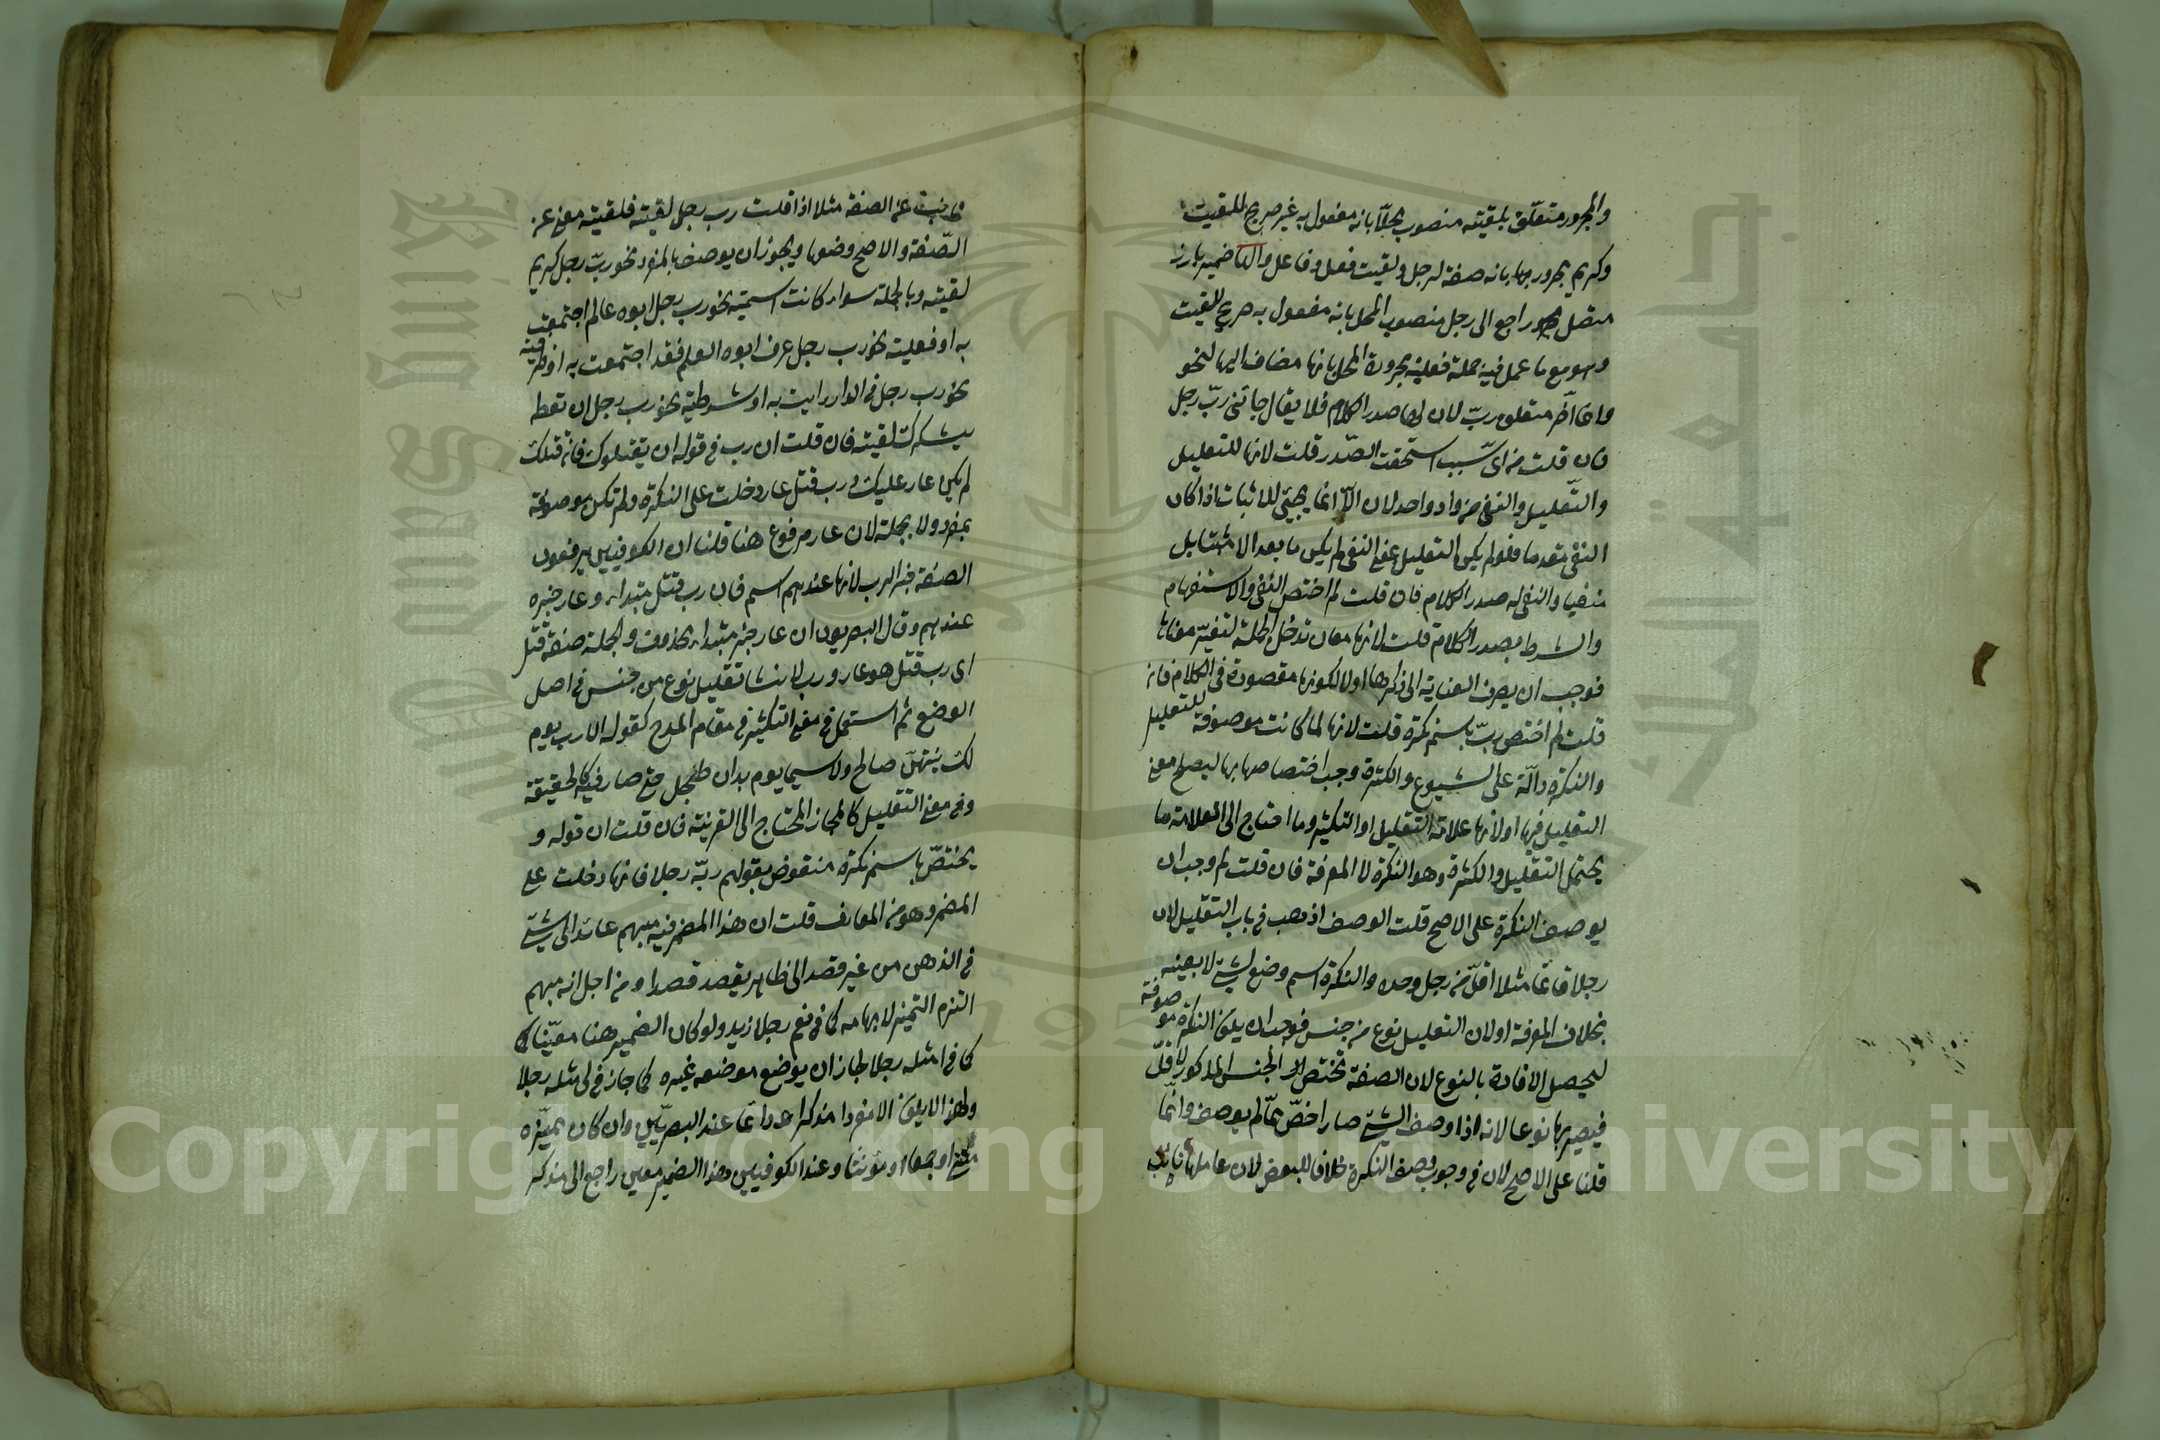 والمجرور متعلق بلقيته منصوب محلا بانه مفعول به غير صريح للقيت
وكريم مجرور بها بانه صفة لرجل ولقيت فعل وفاعل والهاء ضمير بارز
متصل راجع الى رجل منصوب المحل بانه مفعول به صريح للقيت
وهو مع ما عمل فيه جملة فعلية مجرورة المحل بانها مضاف اليها لنحو
وانما اخّر متعلق ربّ لان لها صدر الكلام فلا يقال جائنى ربّ رجل
فان قلت من اىّ سبب استحقت الصّدر قلت لانها للتقليل
والتّقليل والنفى من واد واحد لان الاّ انما يجيئ للاثبات اذا كان
النفى متقدما فلو لم يكن التقليل بمعنى النفى لم يكن ما بعد الا مثبتا بل
منفيا والنفى له صدر الكلام فان قلت لم اختص النفى والاستفهام
والشرط بصدر الكلام قلت لانها معان تدخل الجملة لتغيّر معناها
فوجب ان يصرف العناية الى ذكرها اولا لكونها مقصودة فى الكلام فان
قلت لم اختص ربّ باسم نكرة قلت لانها لما كانت موصوفة للتقليل
والنكرة دالّة على الشيوع والكثرة وجب اختصاصها بها ليصلح معنى
التقليل فيها اولانها علامة التقليل او التكثير وما احتاج الى العلامة ما
يحتمل التقليل والكثرة وهو النكرة لا المعرفة فان قلت لم وجب ان
يوصف النكرة على الاصح قلت الوصف اذهب فى باب التقليل لان
رجلا قائما مثلا اقلّ من رجل وحده والنكرة اسم وضع لشيئ لا بعينه
بخلاف المعرفة اولان التقليل نوع من جنس فوجب ان يكون النكرة موصوفة
ليحصل الافادة بالنوع لان الصفة تختص الجنس المذكور
فيصير بها نوعا لانه اذا وصف الشيئ صار اخصّ ممّا لم يوصف وانّما
قلنا على الاصح لان فى وجوب وصف النكرة خلافا للبعض لان عاملها نائب
نائب عن الصفة مثلا اذا قلت رب رجل لقيته فلقيته مغن عن
الصّفة والاصح وصفها ويجوز ان يوصف بالمفرد نحو ربّ رجل كريم
لقيته وبالجملة سواء كانت اسمية نحو رب رجل ابوه عالم اجتمعت
به او فعلية نحو رب رجل عرف ابوه العلم فقد اجتمعت به او ظرفية
نحو رب رجل فى الدار رايت به او شرطية نحو رب رجل ان تعط
يشكرك لقيته فان قلت ان رب فى قوله ان يقتلوك فان قتلك
لم يكن عار عليك ورب قتل عار دخلت على النكرة ولم تكن موصوفة
بمفرد ولا بجملة لان عار مرفوع هنا قلنا ان الكوفيين يرفعون
الصفة خبرا لرب لانها عندهم اسم فان رب قتل مبتداء وعار خبره
عندهم وقال البصريون ان عار خبر مبتداء محذوف والجملة صفة قتل
اى رب قتل هو عار ورب لانشاء تقليل نوع من جنس فى اصل
الوضع ثم استعمل فى معنى التكثير فى مقام المدح كقوله الا رب يوم
لك منهن صالح ولا سيما يوم بدارة جلجل حتى صار فيه كالحقيقة
وفى معنى التقليل كالمجاز المحتاج الى القرينة فان قلت ان قوله و
يختصّ باسم نكرة منقوض بقولهم ربّه رجلا فانها دخلت على
المضمر وهو من المعارف قلت ان هذا المضمر فيه مبهم عائد الى شيئ
فى الذهن من غير قصد الى ظاهر يقصد قصدا ومن اجل انه مبهم
التزم التمييز لابهامه كما فى نعم رجلا زيد ولو كان الضمير هنا معيّنا
كما فى مثله رجلا لجاز ان يوضع موضعه غيره كما جاز فى لى مثله رجلا
ولهذا لا يكون الا مفردا مذكرا دائما عند البصريّين وان كان مميّزه
مثنى او جمعا او مؤنثا وعند الكوفيين هذا الضمير معين راجع الى مذكر
Copyright © King Saud University
King Saud University
1957